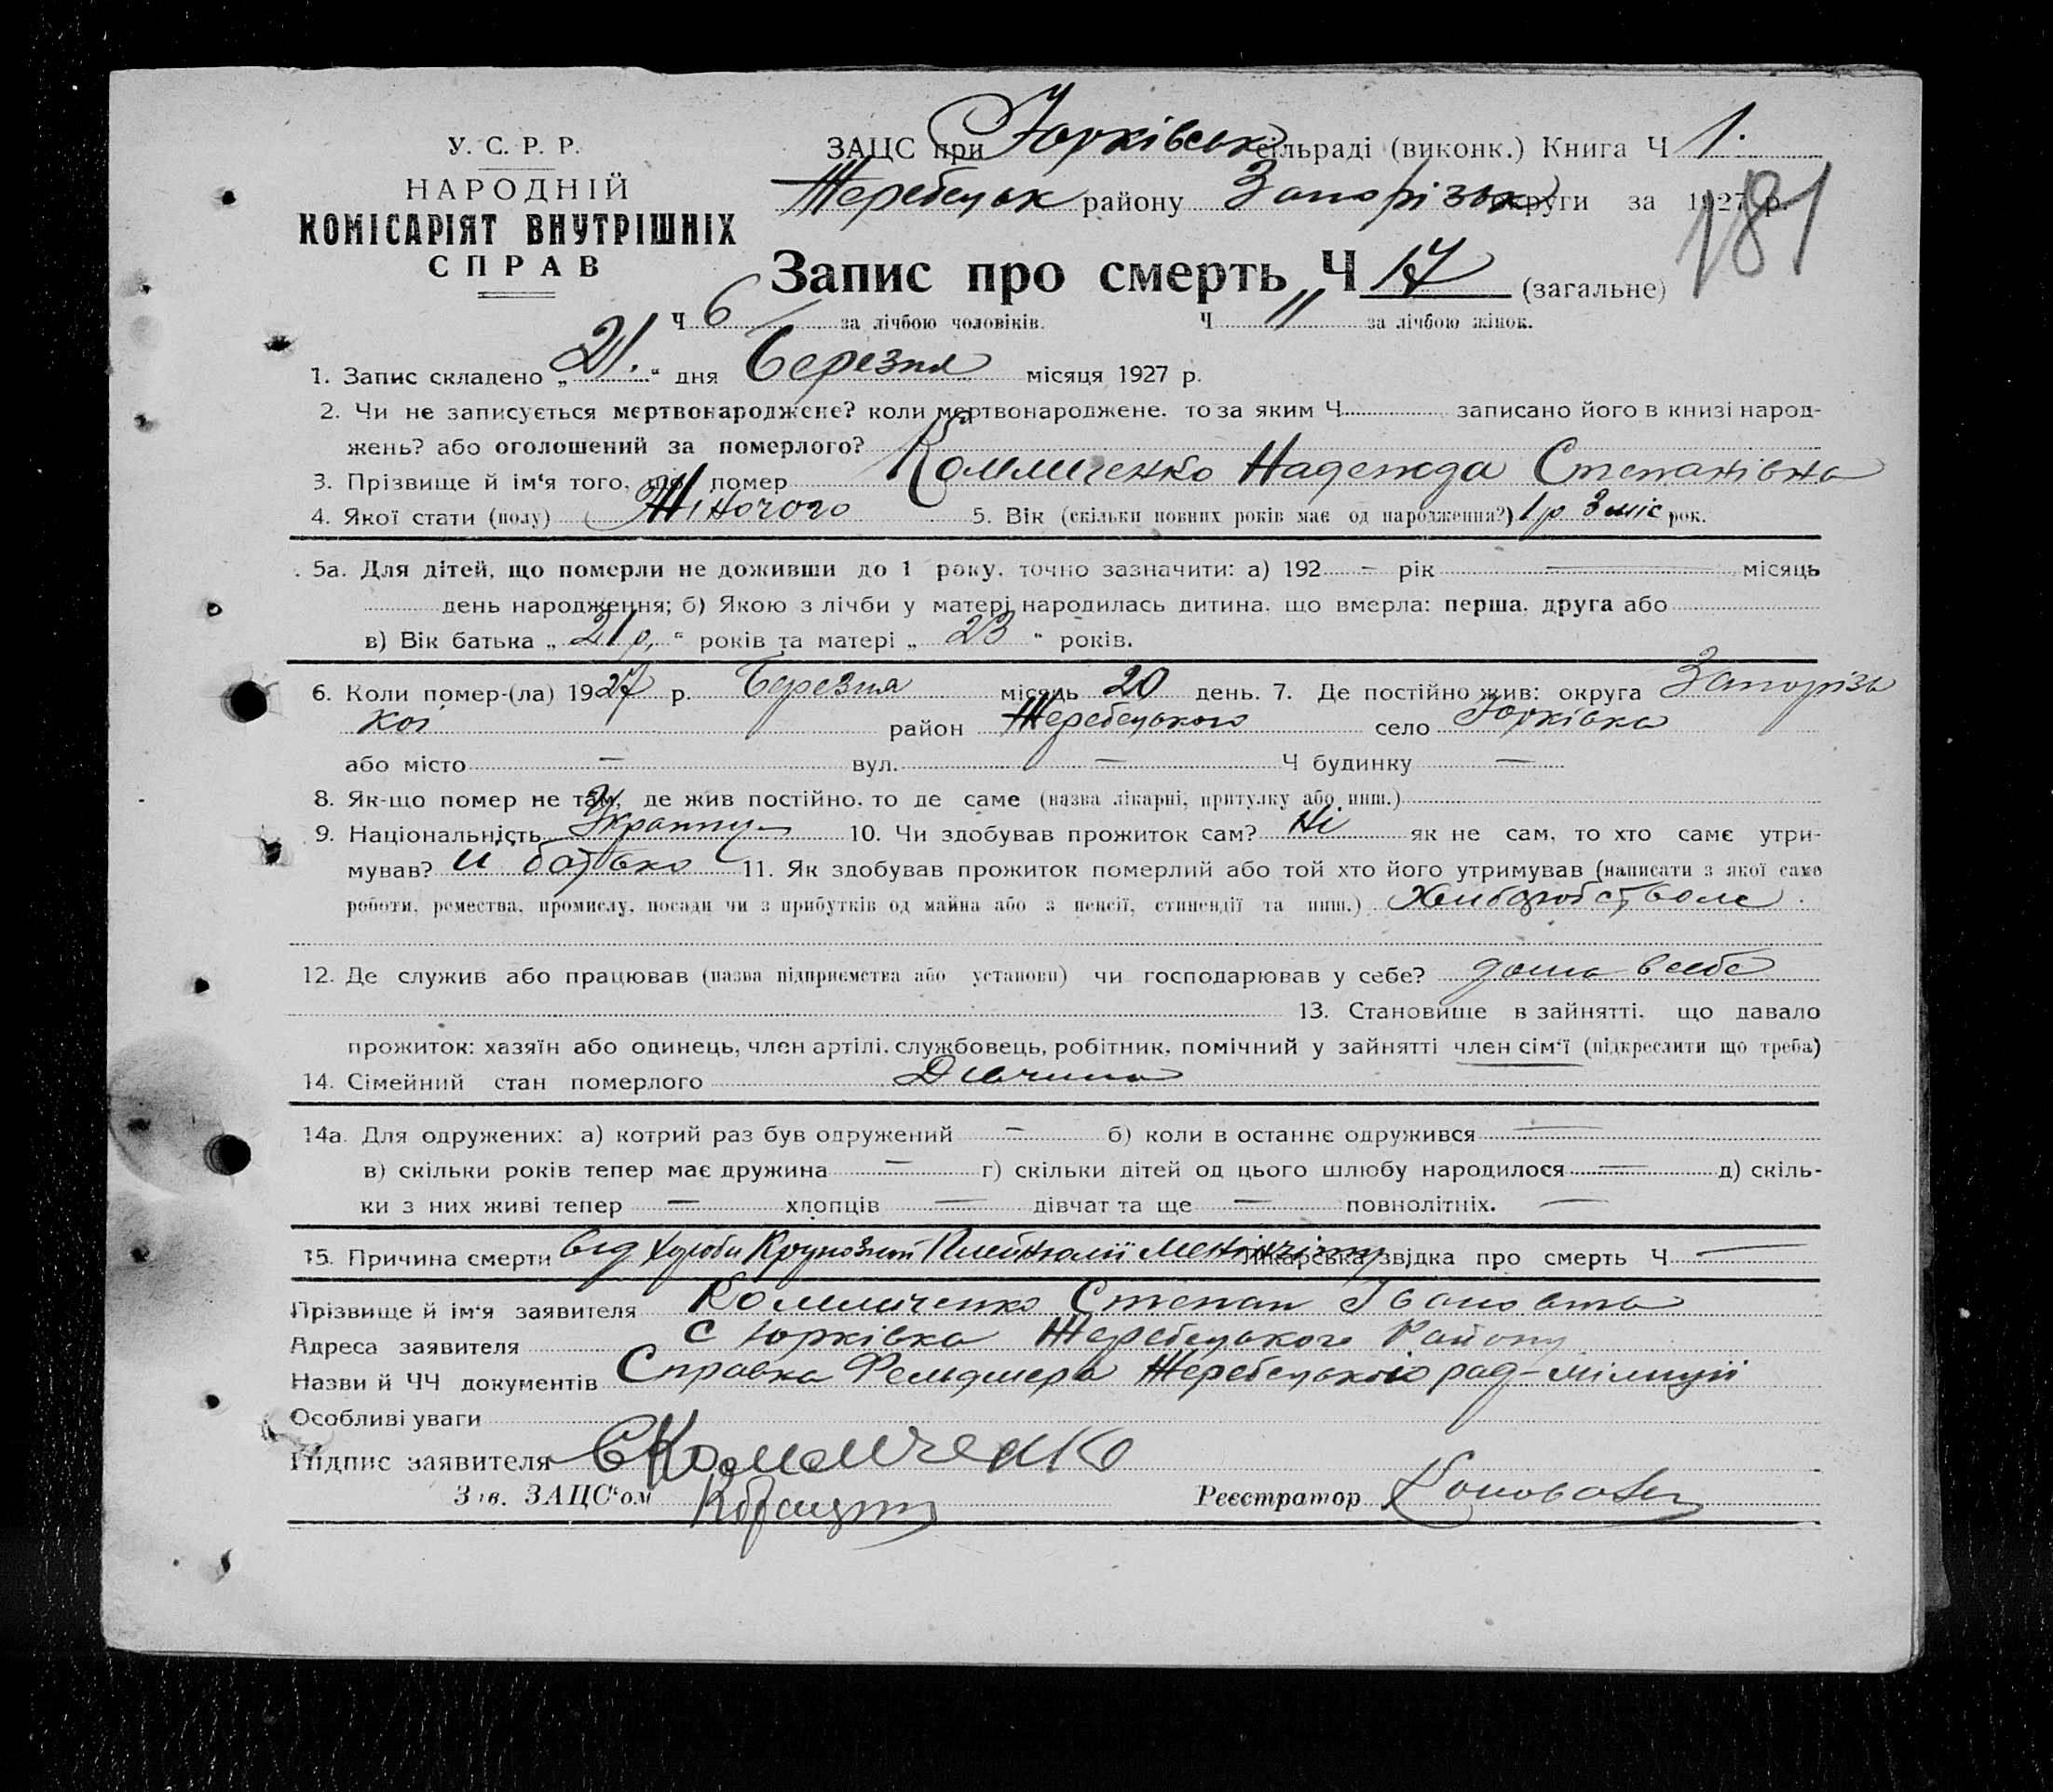 У. С. Р. Р.
НАРОДНІЙ
КОМІСАРІЯТ ВНУТРІШНІХ
СПРАВ
ЗАЦС при Юрківськ сільраді (виконк.) Книга Ч 1.
Жеребецьк району Запорізьк округи за 1927 р.
181
Запис про смерть Ч 17 (загальне)
Ч 6 за лічбою чоловіків. Ч 11 за лічбою жінок.
1. Запис складено „ 21. “ дня Березня місяця 1927 р.
2. Чи не записується мертвонароджене? коли мертвонароджене, то за яким Ч записано його в книзі народ-
жень? або оголошений за померлого?
3. Прізвище й ім‘я того, що помер Надежда Степанівна
4. Якої стати (полу) Жіночого 5. Вік (скільки повних років має од народження?) 1 р 3 міс рок.
5а. Для дітей, що померли не доживши до 1 року, точно зазначити: а) 192 – рік — місяць
день народження; б) Якою з лічби у матері народилась дитина, що вмерла: перша, друга або
в) Вік батька „ 21 р, “ років та матері „ 23 “ років.
6. Коли помер-(ла) 1927 р. Березня місяць 20 день. 7. Де постійно жив: округа Запорізь
кої район Жеребецького село Юрківка
або місто — вул. — Ч будинку —
8. Як-що помер не там, де жив постійно, то де саме (назва лікарні, притулку або инш.)
9. Національність 10. Чи здобував прожиток сам? Ні як не сам, то хто саме утри-
мував? її батько 11. Як здобував прожиток померлий або той хто його утримував (написати з якої саме
роботи, ремества, промислу, посади чи з прибутків од майна або з пенсії, стипендії та инш.) Хлиборобством
12. Де служив або працював (назва підприємства або установи) чи господарював у себе? дома в себе
13. Становище в зайнятті, що давало
прожиток: хазяїн або одинець, член артілі, службовець, робітник, помічний у зайнятті член сім‘ї (підкреслити що треба)
14. Сімейний стан померлого Дівчина
14а. Для одружених: а) котрий раз був одружений – б) коли в останнє одружився —
в) скільки років тепер має дружина — г) скільки дітей од цього шлюбу народилося — д) скіль-
ки з них живі тепер — хлопців — дівчат та ще — повнолітніх. —
15. Причина смерти Від хороби Крупозной Менінгіту Лікарська звідка про смерть Ч —
Прізвище й ім‘я заявителя Степан
Адреса заявителя с Юрківка Жеребецького Району
Назви й ЧЧ документів Справка Фельдшера Жеребецького рад-міліції
Особливі уваги
Підпис заявителя
Зав. ЗАЦС‘ом
Реєстратор